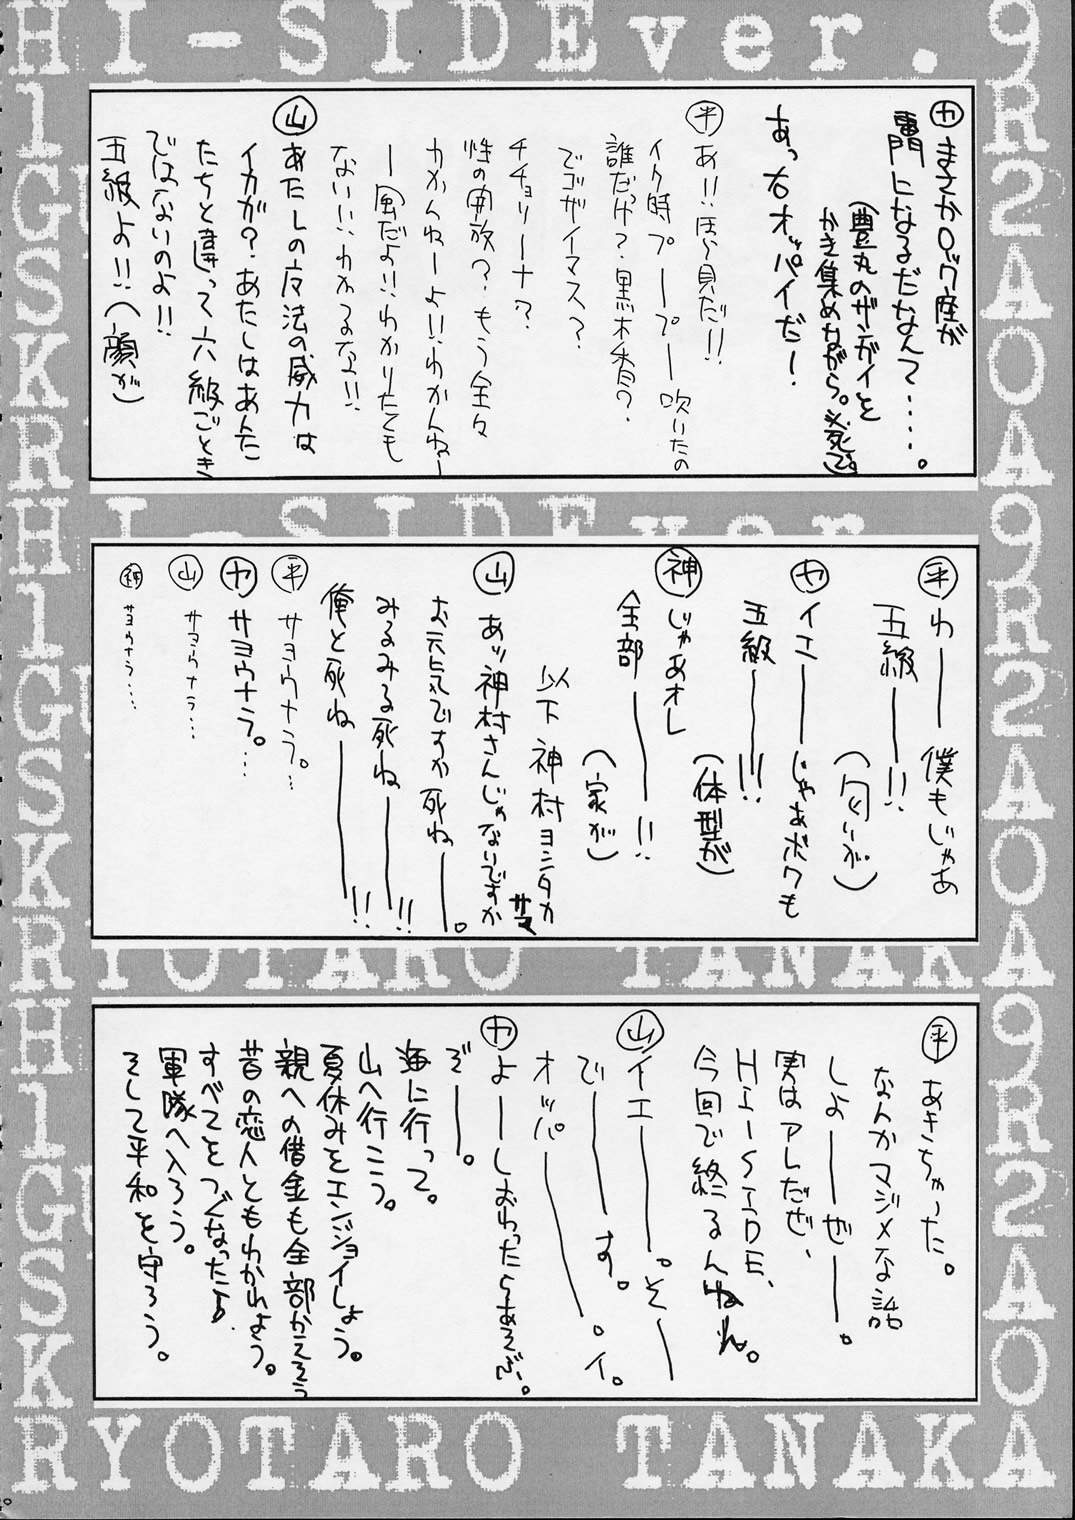 HI-SIDEver.
㋕まさかロック座が
専門になるだなんて‥‥‥。
(豊丸のザンガイを
かき集めながら。必死で。)
あっ右オッパイだー!
㊥あ!!ほら見だ!!
イク時プープー吹いたの
誰だっけ?黒木香?
でゴザイマス?
チチョリーナ?
性の開放?もう全々
わかんねーよ!!わかんねー
ー風だよ!!わかりたくも
ない!!わかるな!!
㊤あたしの魔法の威力は
イカが?あたしはあんた
たちと違って六級ごとき
ではないのよ!!
五級よ!!(顔が)
HI-SIDEver.
わーー僕もじゃあ
五級ーー!!
(匂いが)
イエーーじゃあボクも
五級ーー!!!
(体型が)
神 じゃあオレ
全部ーー!!
(家が)
以下神村ヨシタカサマ
山 あッ神村さんじゃないですか
お元気ですか死ねーー。
みるみる死ねーー!!
俺と死ねーー!!
サヨウナラ。…
カ サヨウナラ。…
山 サヨウナラ…
神 サヨウナラ…
RYOTARO TANAKA
あきちゃった。
なんかマジメな話
しよーーぜーー。
実はアレだぜ、
HI-SIDE、
今回で終るんだねれ。
山 イエーー。そーー
でーーす。
オッパーー。イ。
カ よーーしおわったらあそぶ。
ぞーー。
海に行って。
山へ行こう。
夏休みをエンジョイしよう。
親への借金も全部かえそう
昔の恋人ともわかれよう。
すべてをつぐなったら
軍隊へ入ろう。
そして平和を守ろう。
RYOTARO TANAKA